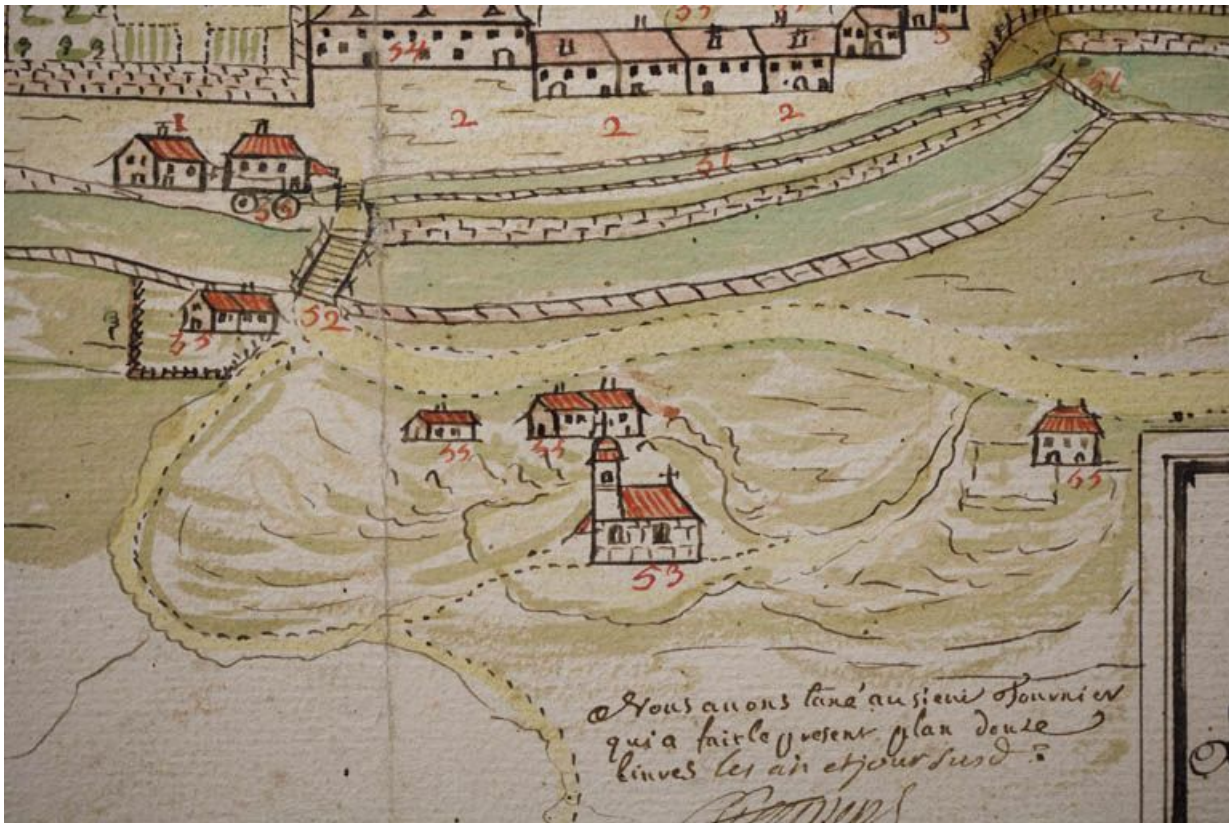 54
2 2 2
51
51
55
52
55
55 55
55
53
Nous auons taxé au sieur Fournier
qui a fait le present plan douze
liures les an et jour susd